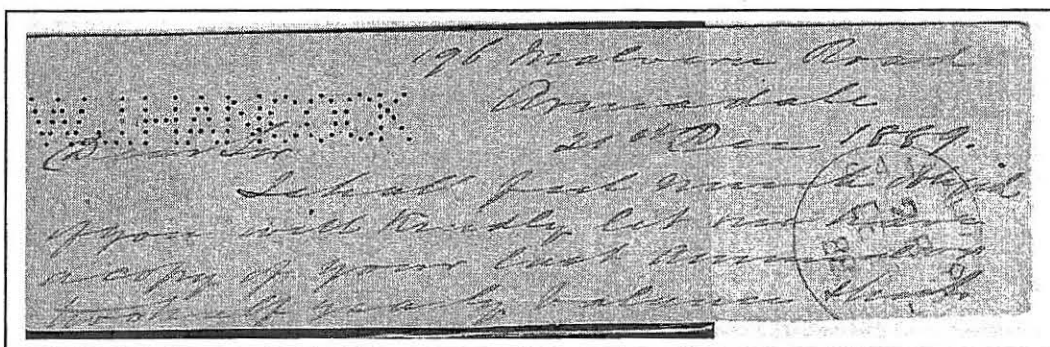 196 Malvern Road
Armadale
W.J.HANCOCK
21st Dec 1889.
Dear Sir
I shall feel much obliged
if you will kindly let me have
a copy of your last
half yearly balance sheet